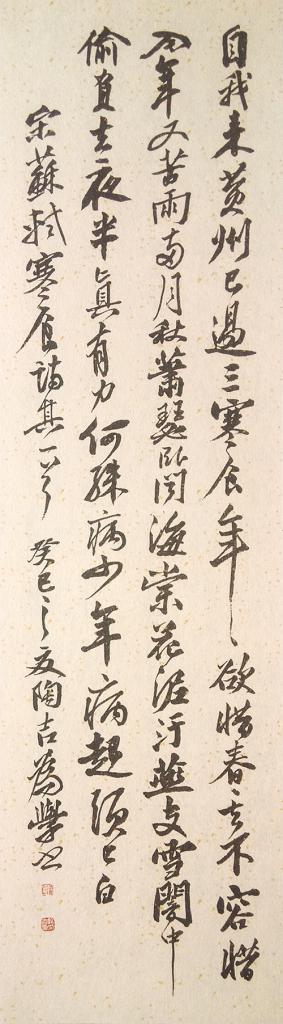 自我来黄州已過三寒食年〻欲惜春春去不容惜
今年又苦雨两月秋蕭瑟卧闻海棠花泥汙燕支雪闇中
偷負去夜半真有力何殊病少年病起須已白
宋蘇軾寒食詩其一 癸巳之夏陶吉為學書